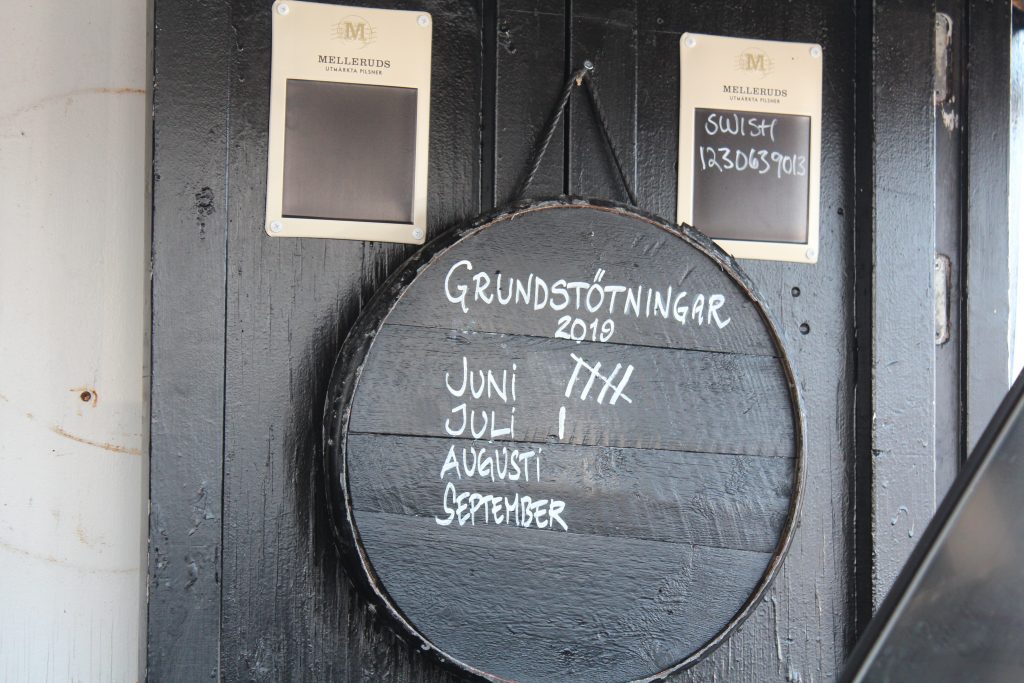 M
MELLERUDS
UTMÄRKTA PILSNER
M
MELLERUDS
UTMÄRKTA PILSNER
SWISH
1230639013
GRUNDSTÖTNINGAR
2019
JUNi
JULi I
AUGUSTi
SEPTEMBER